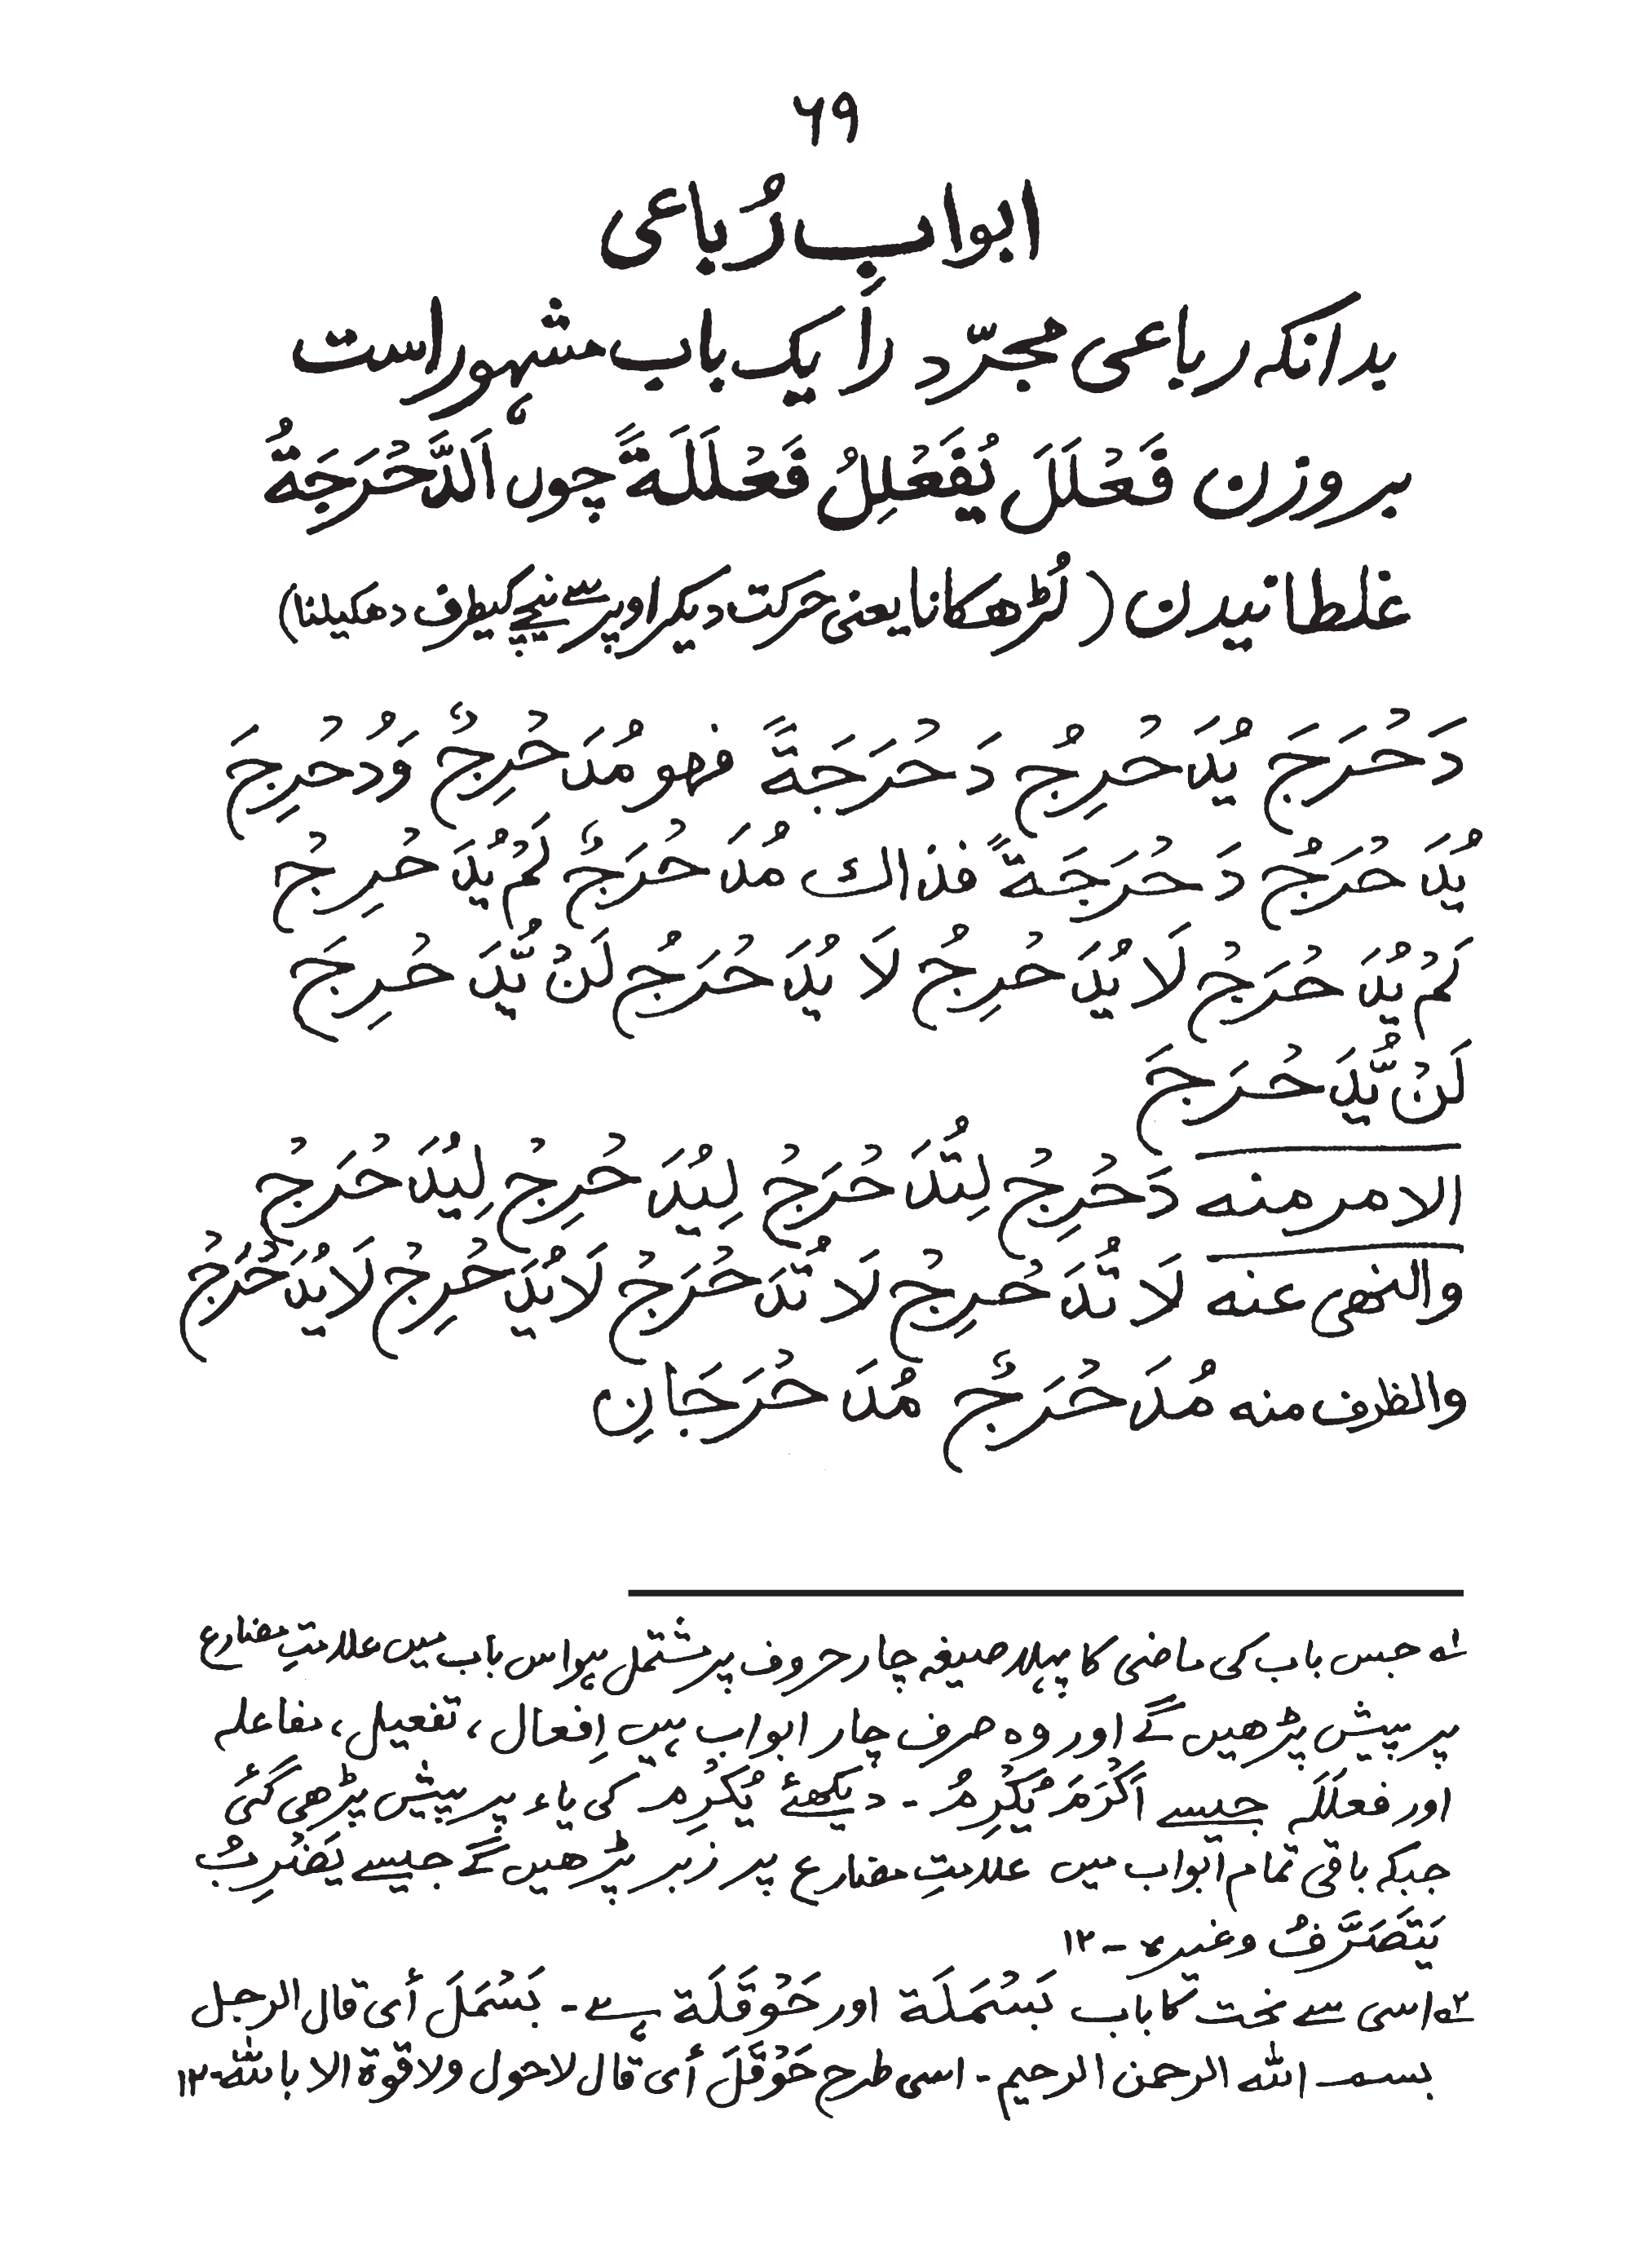 ۶۹
ابوابِ رُباعی
بدانکہ رباعی مجرّد را یک باب مشہور است
بروزن فَعْلَلَ یُفَعْلِلُ فَعْلَلَةً چوں اَلدَّحْرَجَةُ
غلطانیدن (لُڑھکانا یعنی حرکت دیکر اوپر سے نیچے کیطرف دھکیلنا)
دَحْرَجَ یُدَحْرِجُ دَحْرَجَةً فهو مُدَحْرِجٌ وَدُحْرِجَ
یُدَحْرَجُ دَحْرَجَةً فذاك مُدَحْرَجٌ لَمْ یُدَحْرِجْ
لَمْ یُدَحْرَجْ لَا یُدَحْرِجُ لَا یُدَحْرَجُ لَنْ یُّدَحْرِجَ
لَنْ یُّدَحْرَجَ
الامر منه دَحْرِجْ لِتُدَحْرَجْ لِیُدَحْرِجْ لِیُدَحْرَجْ
والنهی عنه لَا تُدَحْرِجْ لَا تُدَحْرَجْ لَا یُدَحْرِجْ لَا یُدَحْرَجْ
والظرف منه مُدَحْرَجٌ مُدَحْرَجَانِ
؂۱ جس باب کی ماضی کا پہلا صیغہ چار حروف پر مشتمل ہو اس باب میں علامتِ مضارع
پر پیش پڑھیں گے اور وہ صرف چار ابواب ہیں اِفعال، تفعیل، مفاعلہ
اور فعلَلَہ جیسے اَکْرَمَ یُکْرِمُ - دیکھئے یُکْرِم کی یاء پر پیش پڑھی گئی
جبکہ باقی تمام ابواب میں علامتِ مضارع پر زبر پڑھیں گے جیسے یَضْرِبُ
یَتَصَرَّفُ وغیرہ - ۱۲
؂۲ اسی سے نحت کا باب بَسْمَلَة اور حَوْقَلَة ہے - بَسْمَلَ أی قال الرجل
بسم الله الرحمن الرحیم - اسی طرح حَوْقَلَ أی قال لاحول ولا قوة الا بالله - ۱۲